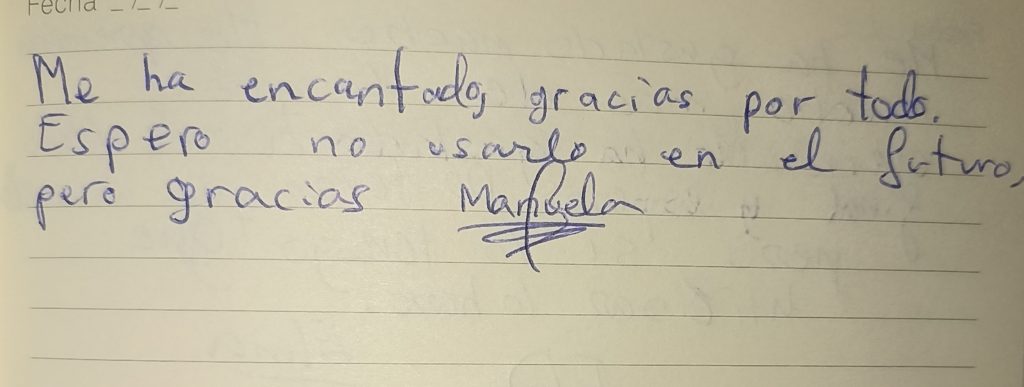 Fecha _/_/_
Me ha encantado, gracias por todo.
Espero no usarlo en el futuro,
pero gracias Manuela